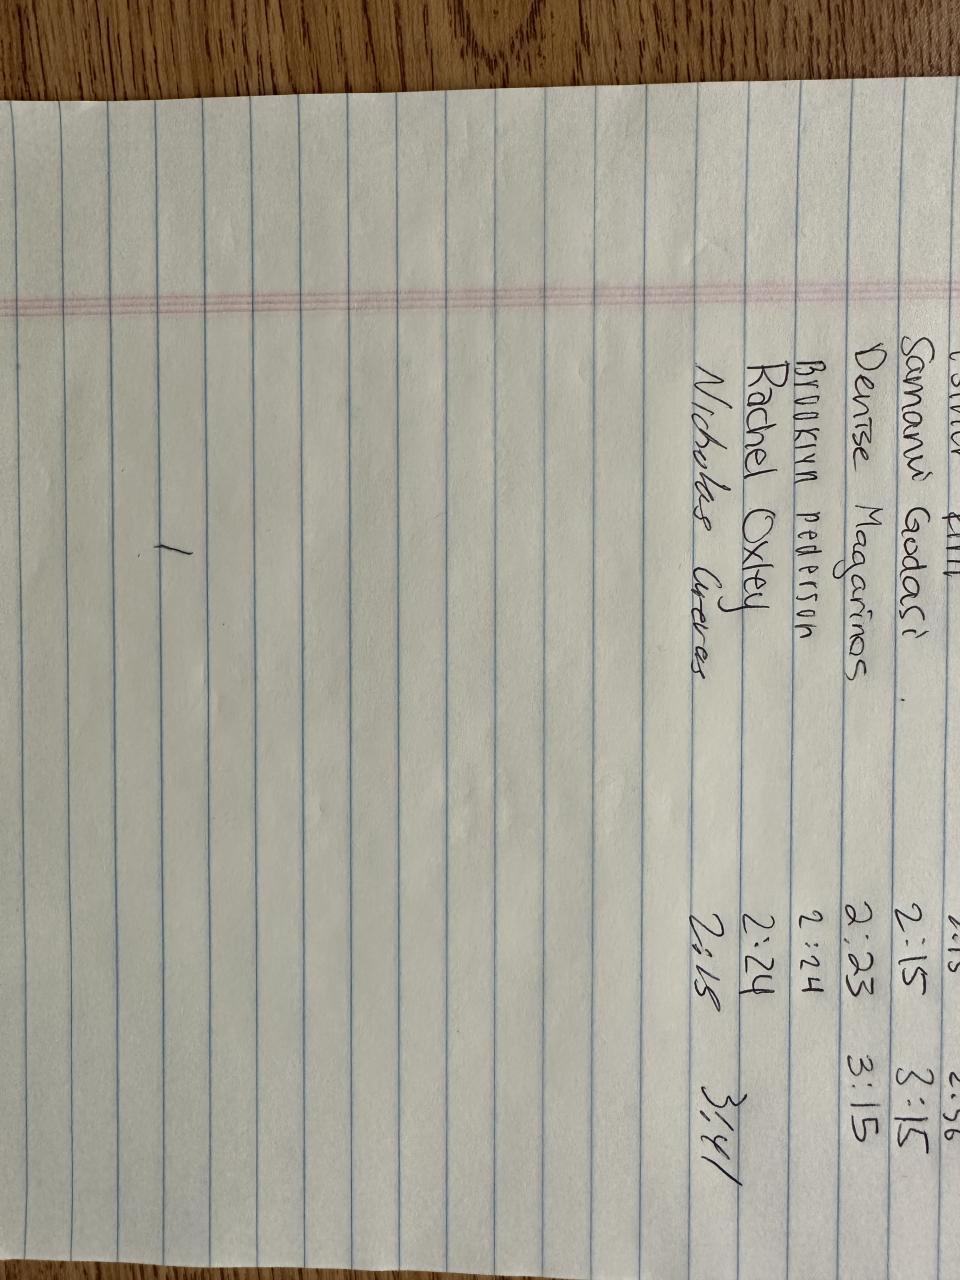 Samanvi Godasi 2:15 3:15
Denise Magarinos 2:23 3:15
Brooklyn pederson 2:24
Rachel Oxley 2:24
Nicholas 2:18 3:41